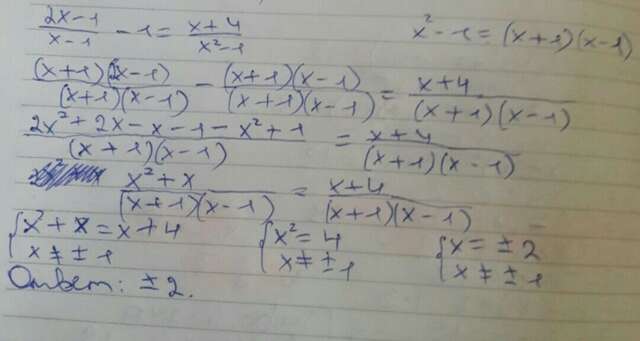 (2x-1)/(x-1) - 1 = (x+4)/(x²-1)   x²-1=(x+1)(x-1)
((x+1)(2x-1))/((x+1)(x-1)) - ((x+1)(x-1))/((x+1)(x-1)) = (x+4)/((x+1)(x-1))
(2x²+2x-x-1-x²+1)/((x+1)(x-1)) = (x+4)/((x+1)(x-1))
(x²+x)/((x+1)(x-1)) = (x+4)/((x+1)(x-1))
{x²+x=x+4   {x²=4   {x=±2
x≠±1   x≠±1   x≠±1
Ответ: ±2.